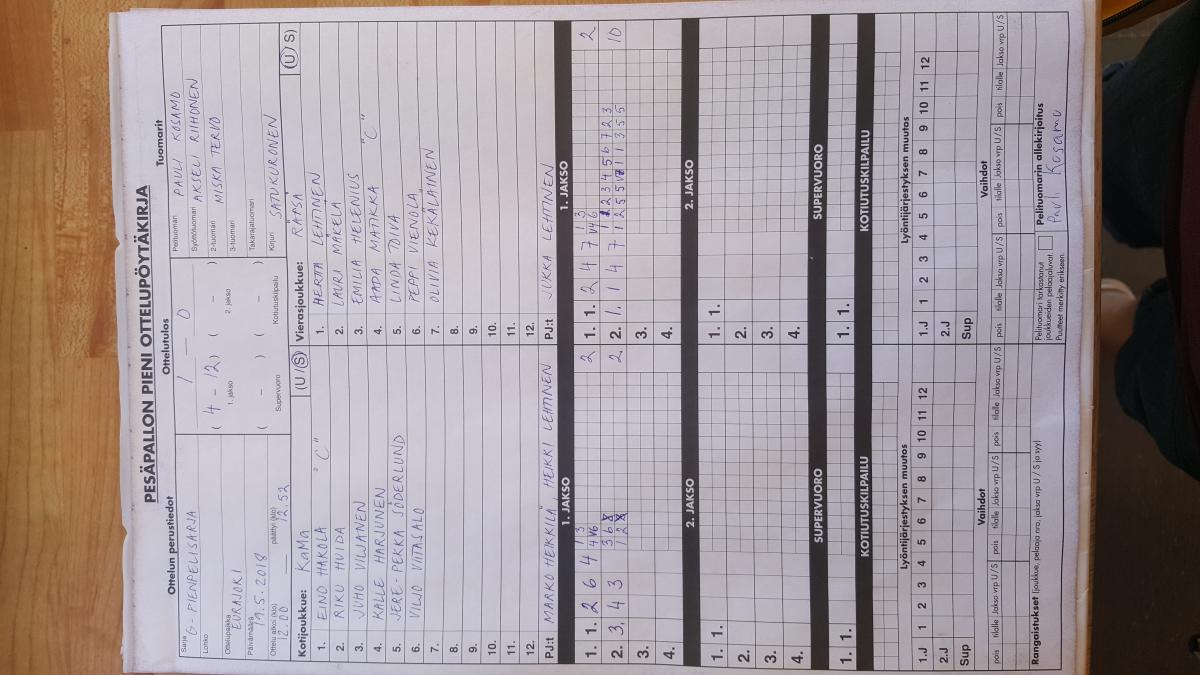 PESÄPALLON PIENI OTTELUPÖYTÄKIRJA
Ottelun perustiedot
Sarja G-PIENPELISARJA
Lohko
Ottelupaikka EURAJOKI
Päivämäärä 19.5.2018
Ottelu alkoi (klo) 12.00 päättyi (klo) 12.52
Ottelutulos
1 – 0
( 4 – 12 ) ( – )
1. jakso 2. jakso
( – ) ( – )
Supervuoro Kotiutuskilpailu
Tuomarit
Pelituomari PAULI KOSAMO
Syöttötuomari AKSELI RIIHONEN
2-tuomari MISKA TERVO
3-tuomari
Takarajatuomari
Kirjuri SATU KURONEN
Kotijoukkue: KaMa (U / S)
1. EINO HAKOLA "C"
2. RIKU HUIDA
3. JUHO VILJANEN
4. KALLE HARJUNEN
5. JERE-PEKKA SÖDERLUND
6. VILJO VIITASALO
7.
8.
9.
10.
11.
12.
PJ:t MARKO HEIKKILÄ, HEIKKI LEHTINEN
Vierasjoukkue: RÄPSÄ (U / S)
1. HERTTA LEHTINEN
2. LAURI MÄKELÄ
3. EMILIA HELENIUS
4. AADA MATIKKA "C"
5. LINDA TOIVA
6. PEPPI VIENOLA
7. OLIVIA KEKÄLÄINEN
8.
9.
10.
11.
12.
PJ:t JUKKA LEHTINEN
1. JAKSO
1. 1. 2 6 4 1 3 4 V6 2
2. 3. 4 3 3 6 1 2 2
3.
4.
1. JAKSO
1. 1. 2 4 7 1 3 V4 6 2
2. 1. 1 4 7 10
3.
4.
2. JAKSO
1. 1.
2.
3.
4.
2. JAKSO
1. 1.
2.
3.
4.
SUPERVUORO
1. 1.
SUPERVUORO
1. 1.
KOTIUTUSKILPAILU
KOTIUTUSKILPAILU
Lyöntijärjestyksen muutos
1.J 1 2 3 4 5 6 7 8 9 10 11 12
2.J
Sup
Lyöntijärjestyksen muutos
1.J 1 2 3 4 5 6 7 8 9 10 11 12
2.J
Sup
Vaihdot
pois tilalle Jakso vrp U/S pois tilalle Jakso vrp U/S pois tilalle Jakso vrp U/S
Vaihdot
pois tilalle Jakso vrp U/S pois tilalle Jakso vrp U/S pois tilalle Jakso vrp U/S
Rangaistukset (joukkue, pelaaja nro, jakso vrp U / S ja syy)
Pelituomari tarkastanut
joukkueiden pelaajaluvat.
Puutteet merkitty erikseen.
Pelituomarin allekirjoitus
Pauli Kosamo